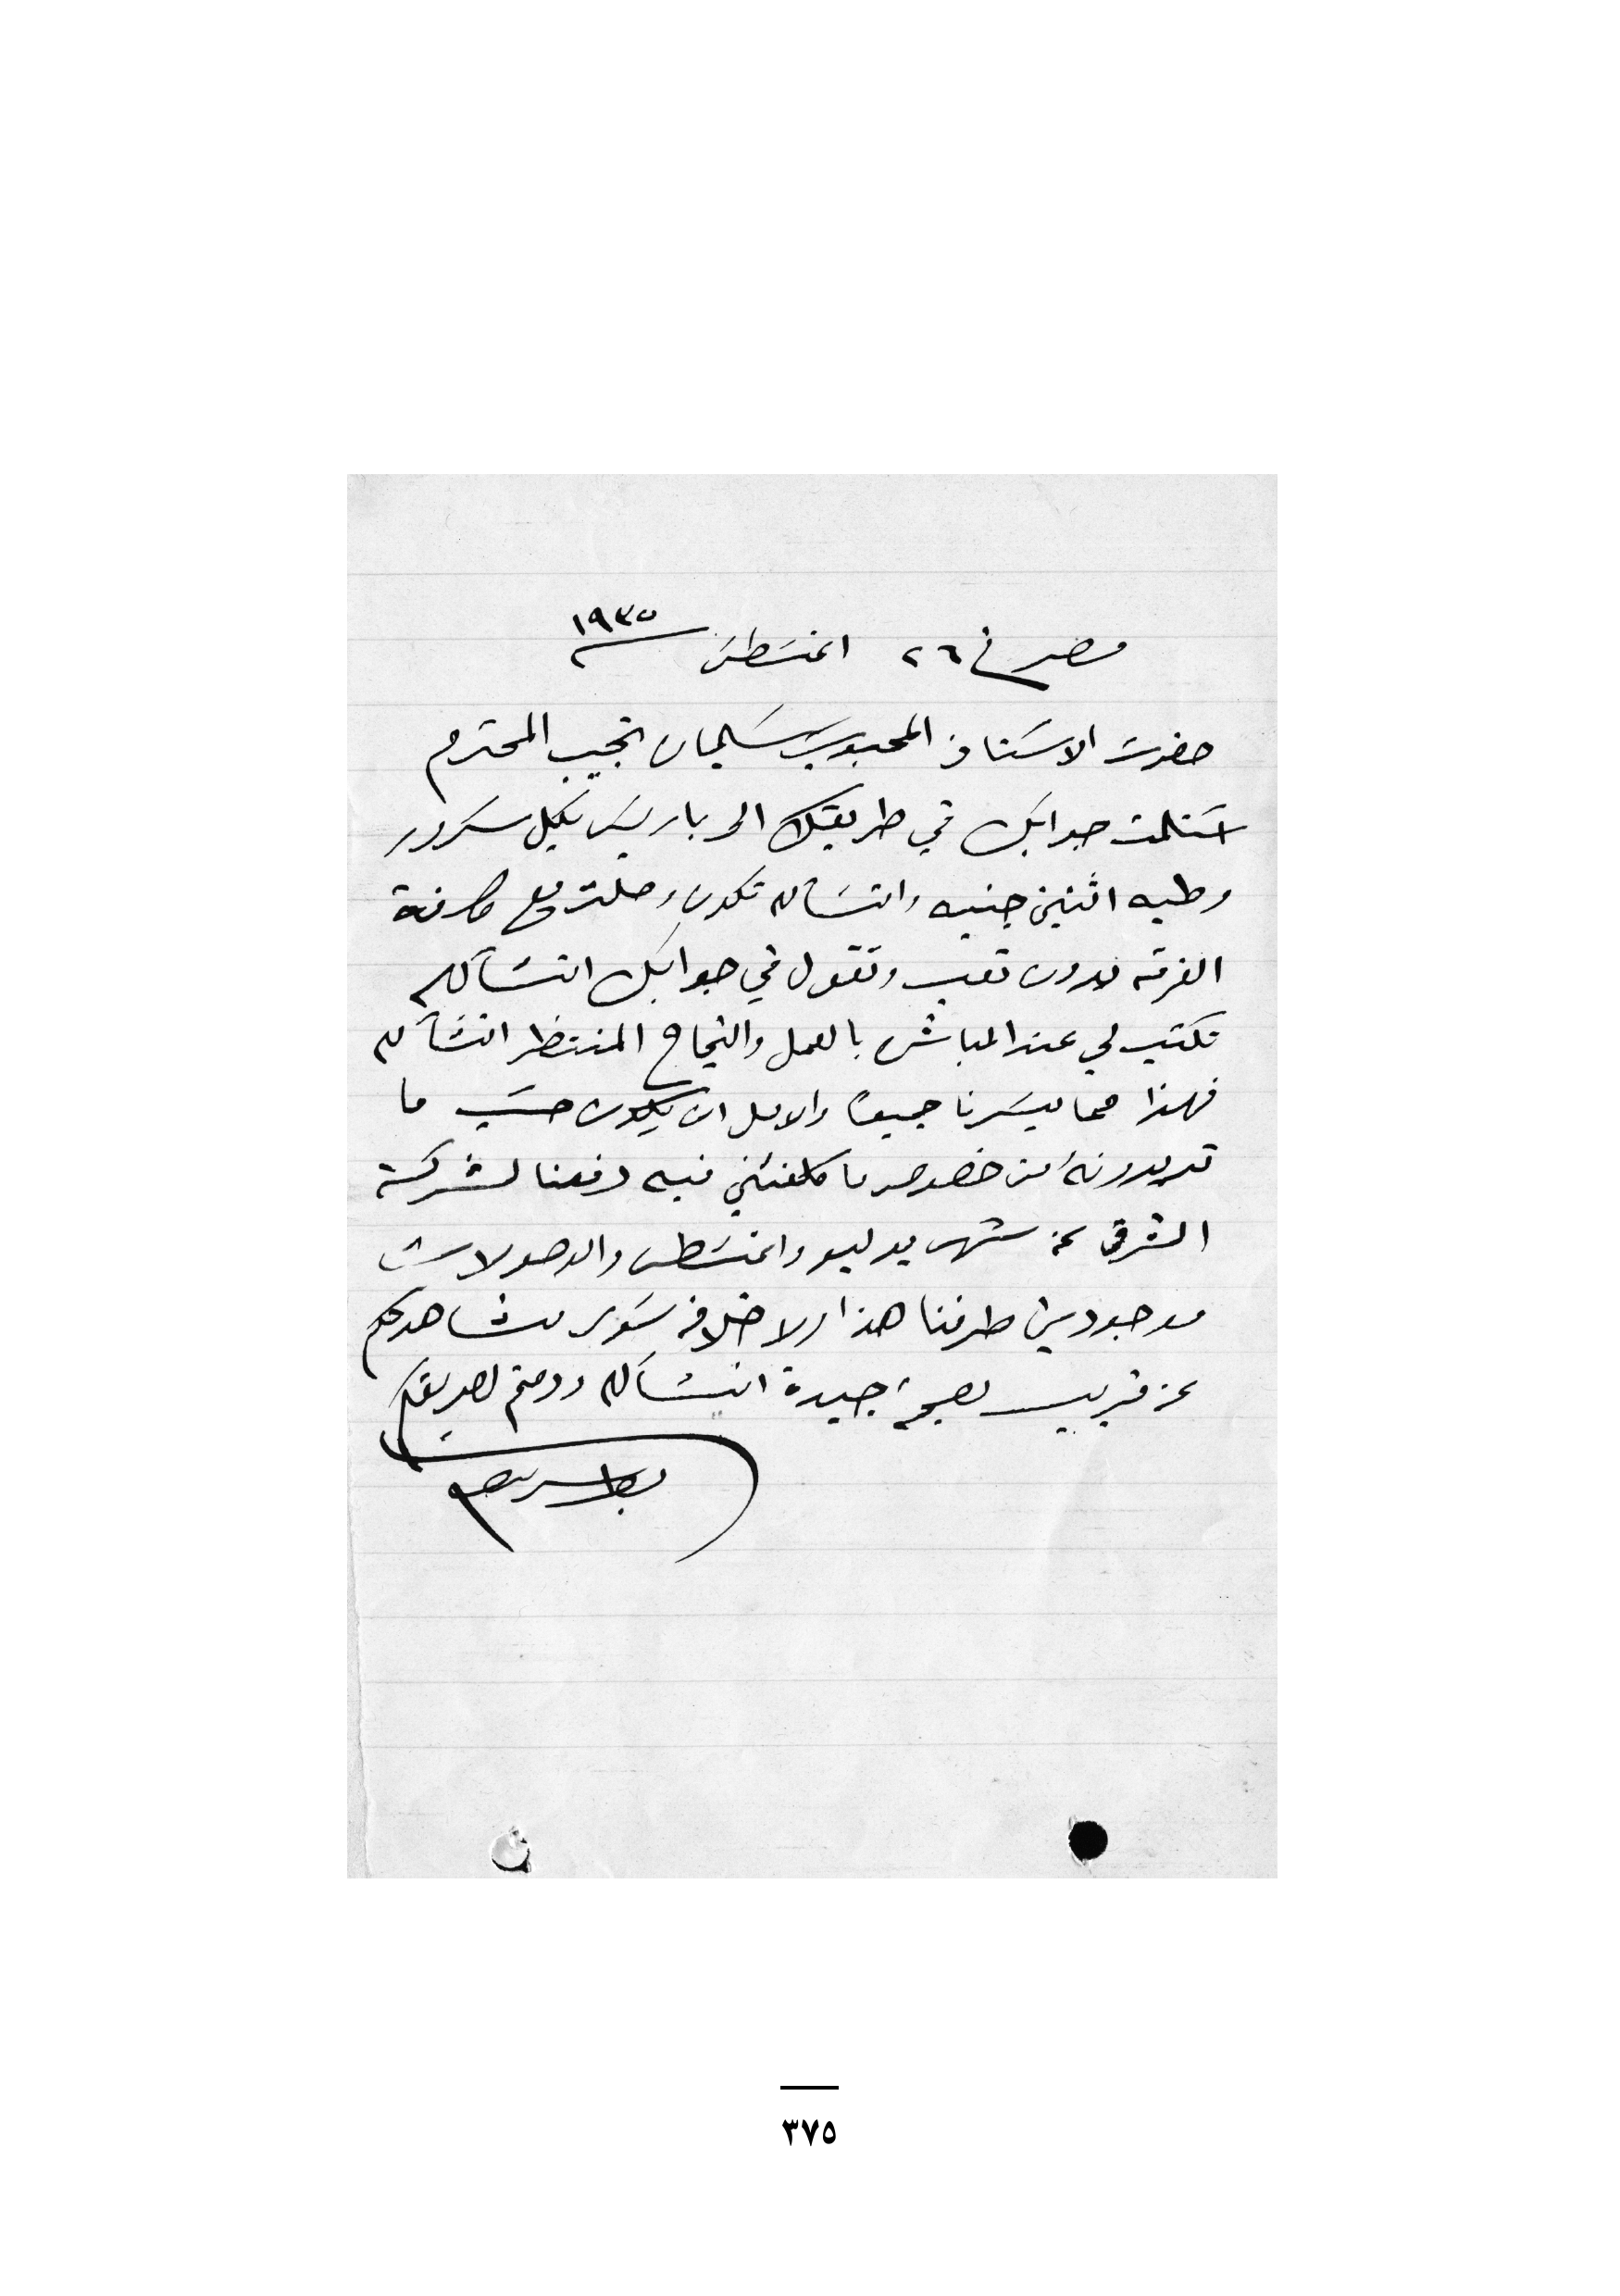 مصر في ٢٦ اغسطس سنة ١٩٣٥
حضرت الاستاذ المحبوب سليمان نجيب المحترم
استلمت جوابك في طريقك الى باريس بكل سرور
وطيه اثنين جنيه وانشاله تكون وصلت مع كافة
الفرقه بدون تعب وتقول في جوابك انشالله
تكتب لي عند المباشره بالعمل والنجاح المنتظر انشاله
فهذا مما يسرنا جميعا والامل ان يكون حسب ما
تريدونه من خصوص ما كلفتني فيه دفعنا لشركة
الشرق عن شهر يوليو واغسطس والوصولات
موجودين طرفنا هذا ولا خلافه سوى مشاهدتكم
عن قريب بصحة جيدة انشاله ودمتم لصديقكم
٣٧٥